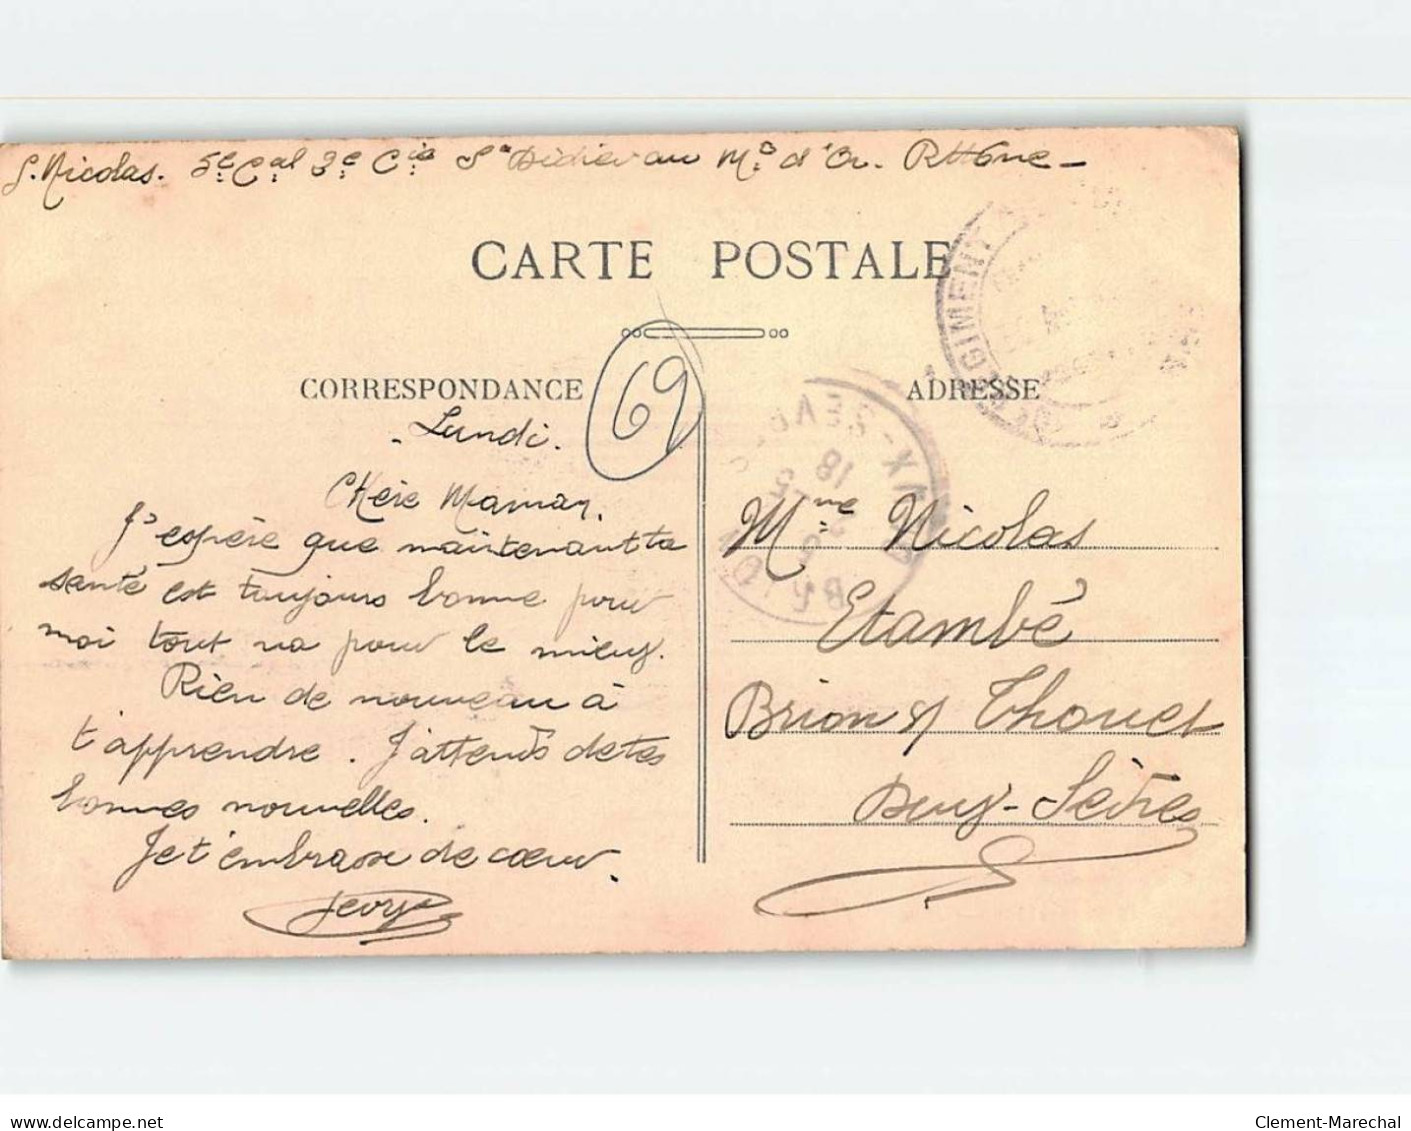 Nicolas. 5e C.al 3e Cie St Didier au Mt d'Or. Rhône -
CARTE POSTALE
69
CORRESPONDANCE
ADRESSE
REGIMENT
18
BRION
- Lundi.
Chère Maman,
J'espère que maintenant ta
santé est toujours bonne pour
moi tout va pour le mieux.
Rien de nouveau à
t'apprendre. J'attends de tes
bonnes nouvelles.
Je t'embrasse de coeur.
Mme Nicolas
Etambé
Brion s/ Thouet
Deux-Sèvres
www.delcampe.net
Clement-Marechal